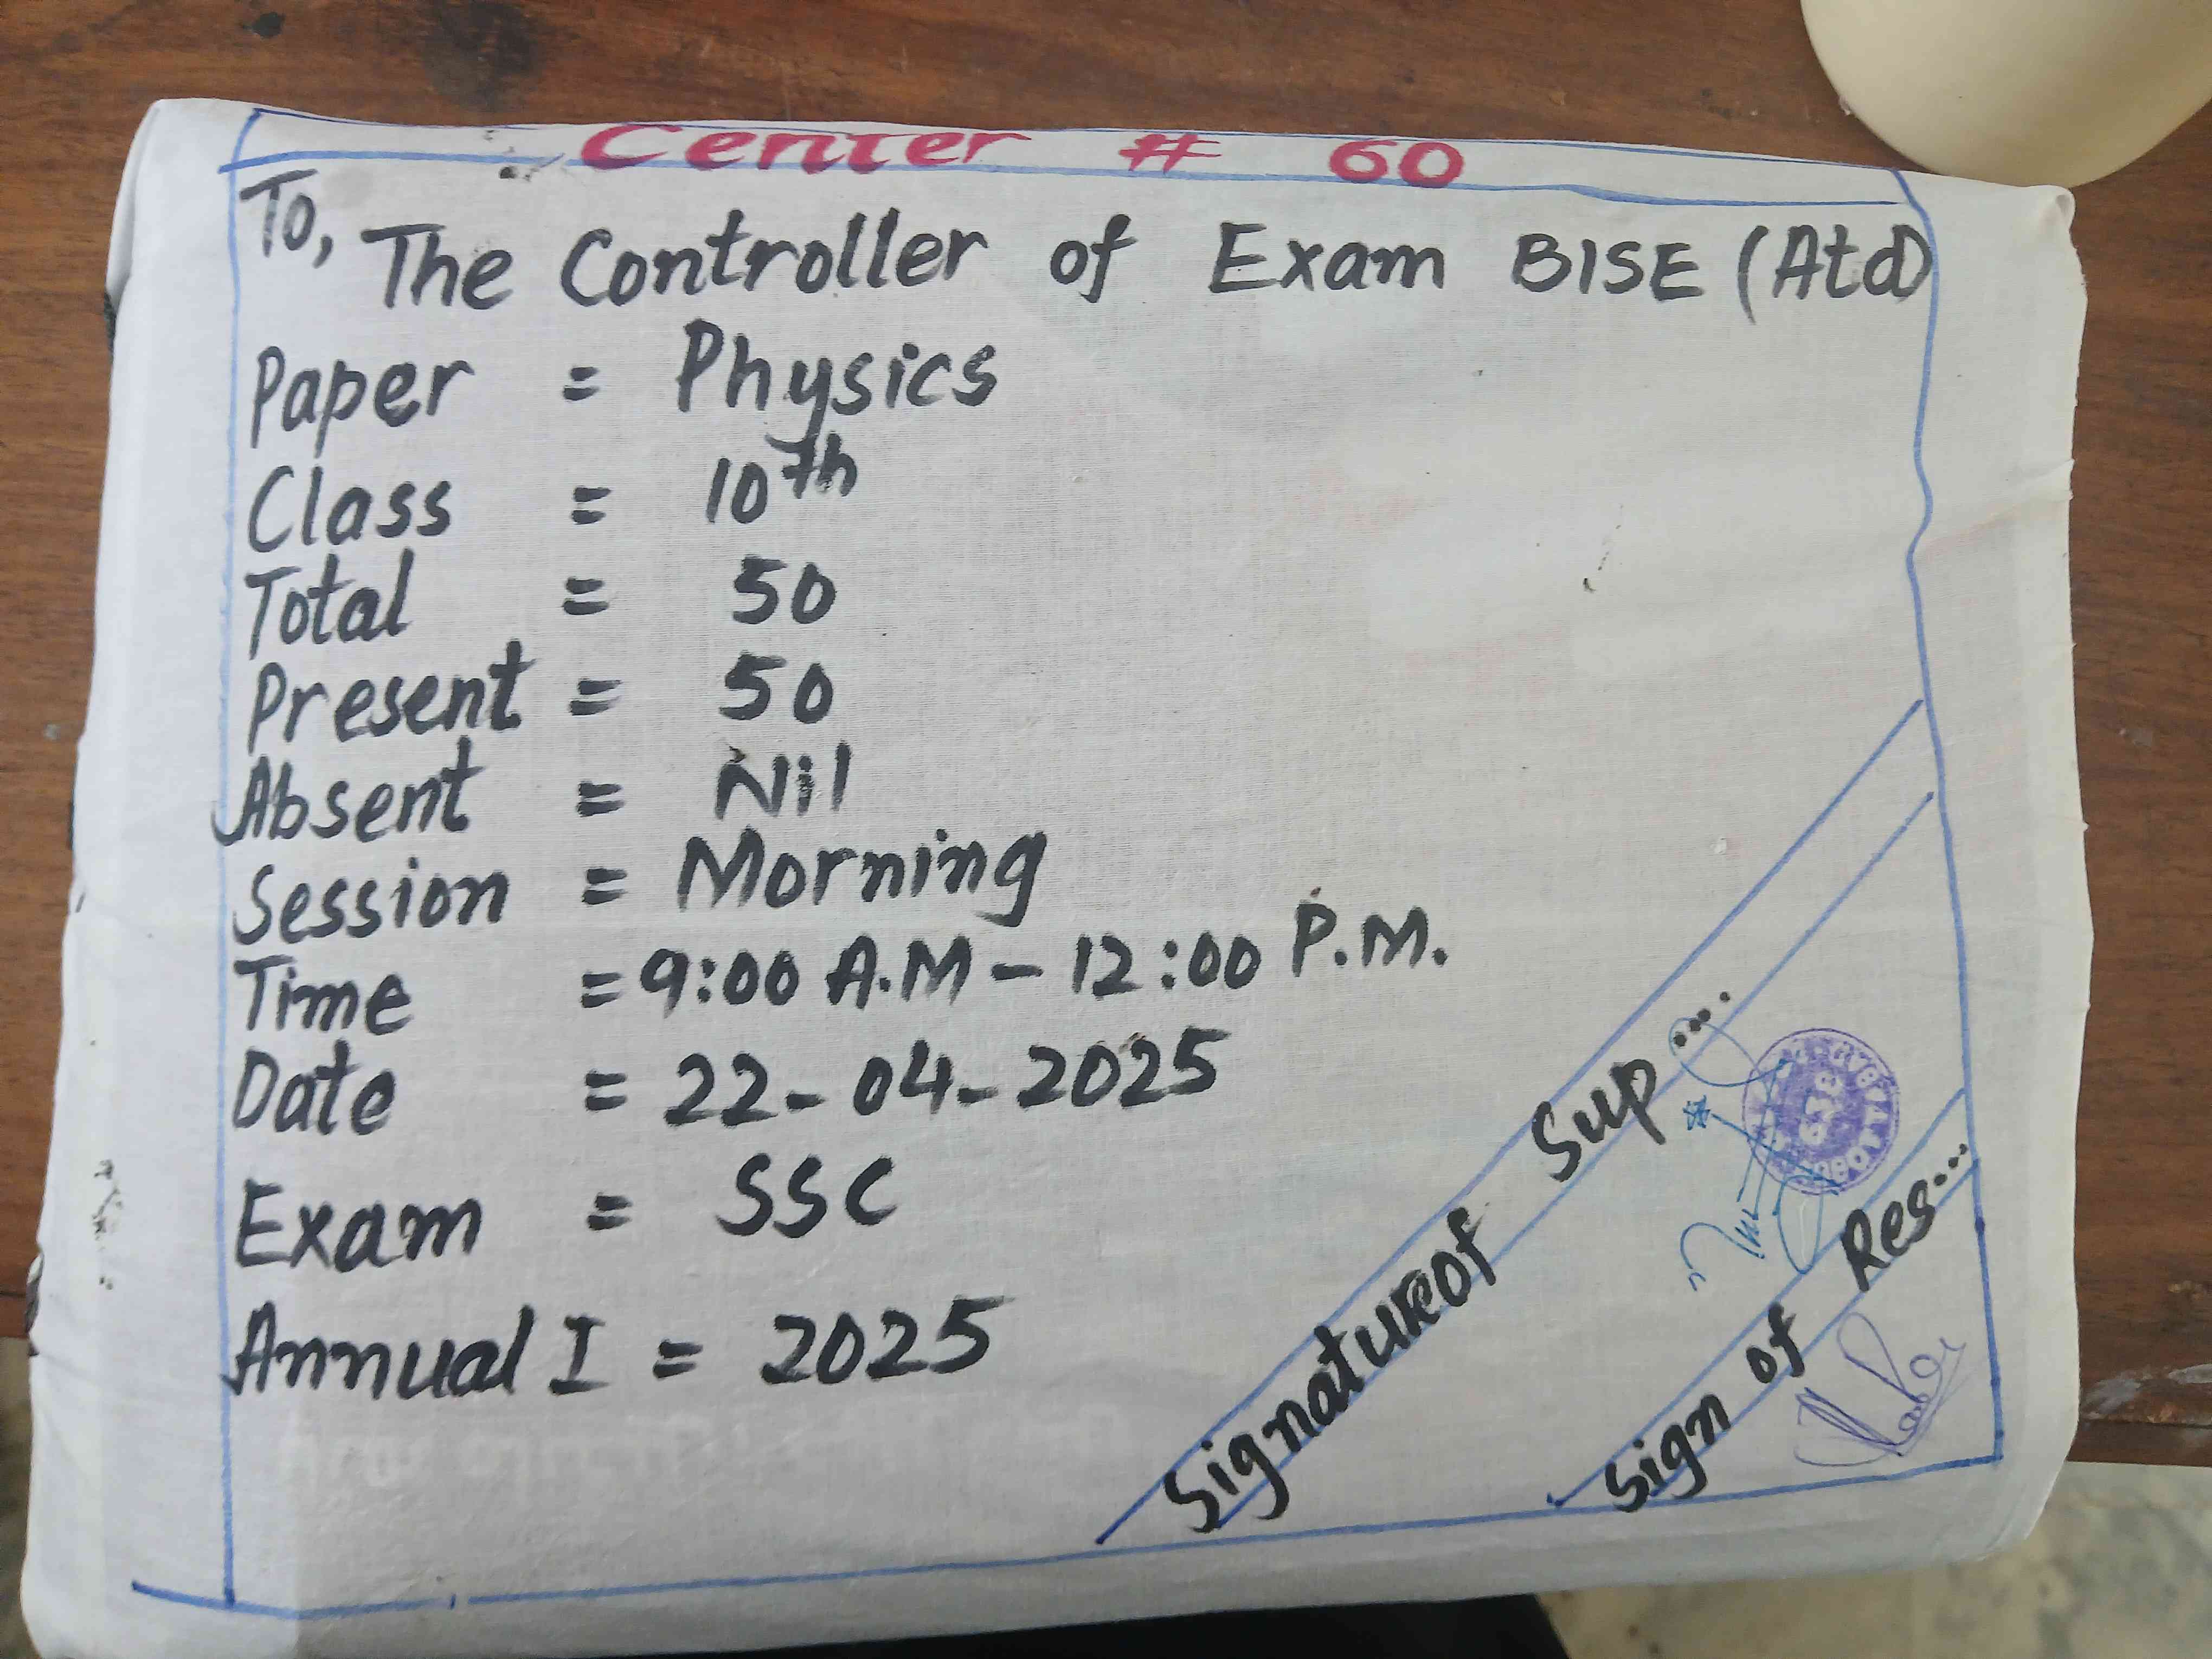 Center # 60
To,
The Controller of Exam BISE (Atd)
Paper = Physics
Class = 10th
Total = 50
Present = 50
Absent = Nil
Session = Morning
Time = 9:00 A.M - 12:00 P.M.
Date = 22-04-2025
Exam = SSC
Annual I = 2025
Signature of Sup....
Sign of Res....